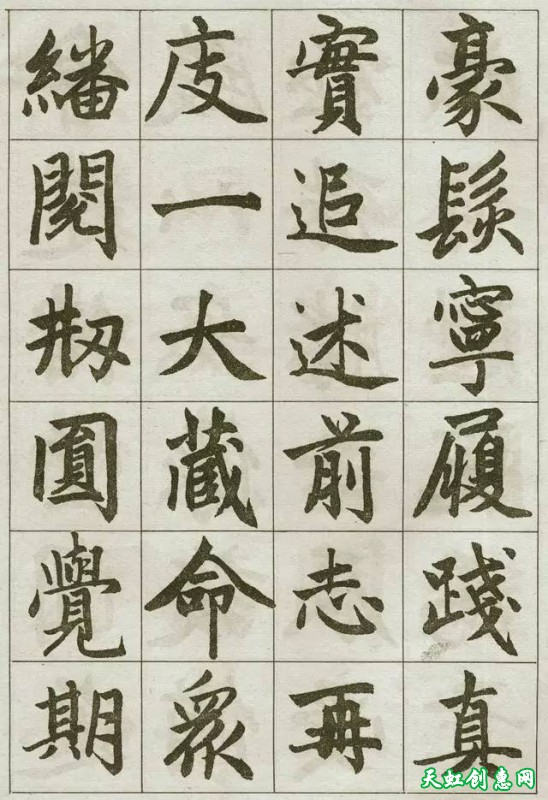 豪髮寧履踐真
實追述前志再
庋一大藏命衆
繙閱刱圓覺期
天虹创惠网